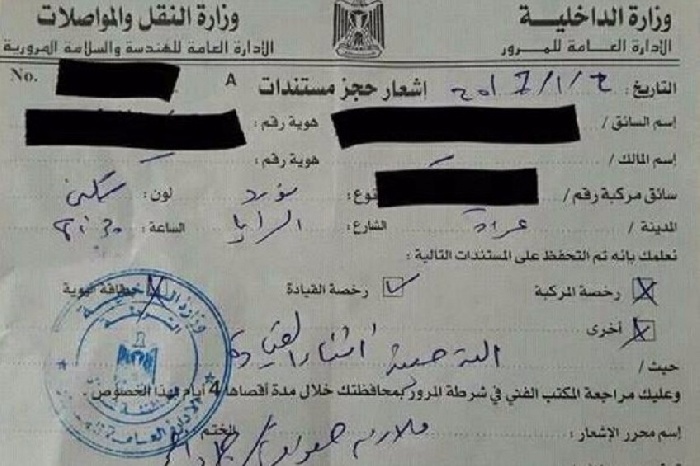 وزارة الداخلية
الادارة العامة للمرور
وزارة النقل والمواصلات
الادارة العامة للهندسة والسلامة المرورية
No.
A
اشعار حجز مستندات
التاريخ:
إسم السائق / هوية رقم:
إسم المالك / هوية رقم:
سائق مركبة رقم / نوع: فورد لون: سكني
المدينة / غزة الشارع: السرايا الساعة:
نعلمك بانه تم التحفظ على المستندات التالية:
رخصة المركبة رخصة القيادة بطاقة هوية
أخرى
حيث / التدخين أثناء القيادة
وعليك مراجعة المكتب الفني في شرطة المرور بمحافظتك خلال مدة أقصاها 4 أيام لهذا الخصوص.
إسم محرر الإشعار: ملازم الختم
التوقيع: